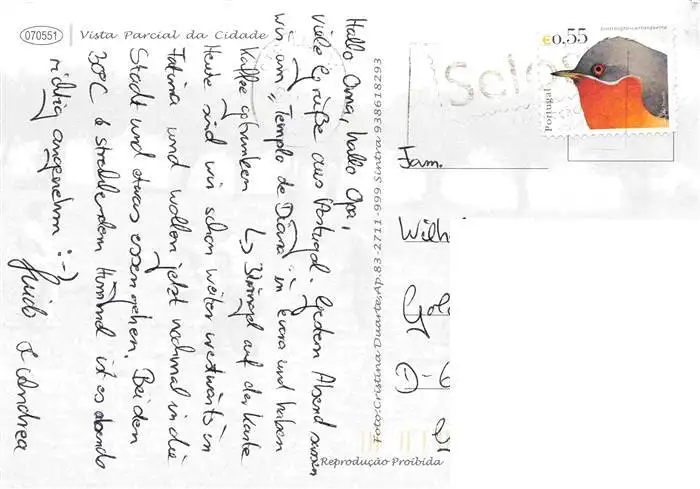 070551
Vista Parcial da Cidade
Hallo Oma, hallo Opa,
viele Grüße aus Portugal. Gestern Abend sassen
wir am "Templo de Diana" in Evora und haben
Kaffee getrunken ↳ Bild auf der Karte
Heute sind wir schon weiter westwärts in
Fatima und wollen jetzt nochmal in die
Stadt und etwas essen gehen. Bei den
30°C & strahlendem Himmel ist es abends
richtig angenehm :-)
Guido & Andrea
Foto: Cristina Duarte Ap. 83.2711-999 Sintra 938618293
Reprodução Proibida
€0,55
Portugal
Fam.
Wilh
D-6